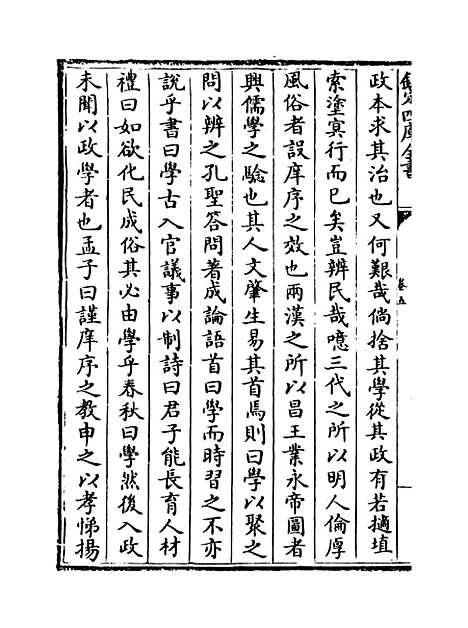 欽定四庫全書
卷五
政本求其治也又何艱哉倘捨其學從其政有若擿埴
索塗冥行而已矣豈辨民哉噫三代之所以明人倫厚
風俗者設庠序之效也兩漢之所以昌王業永帝圖者
興儒學之驗也其人文肇生易其首焉則曰學以聚之
問以辨之孔聖答問著成論語首曰學而時習之不亦
說乎書曰學古入官議事以制詩曰君子能長育人材
禮曰如欲化民成俗其必由學乎春秋曰學然後入政
未聞以政學者也孟子曰謹庠序之教申之以孝悌揚